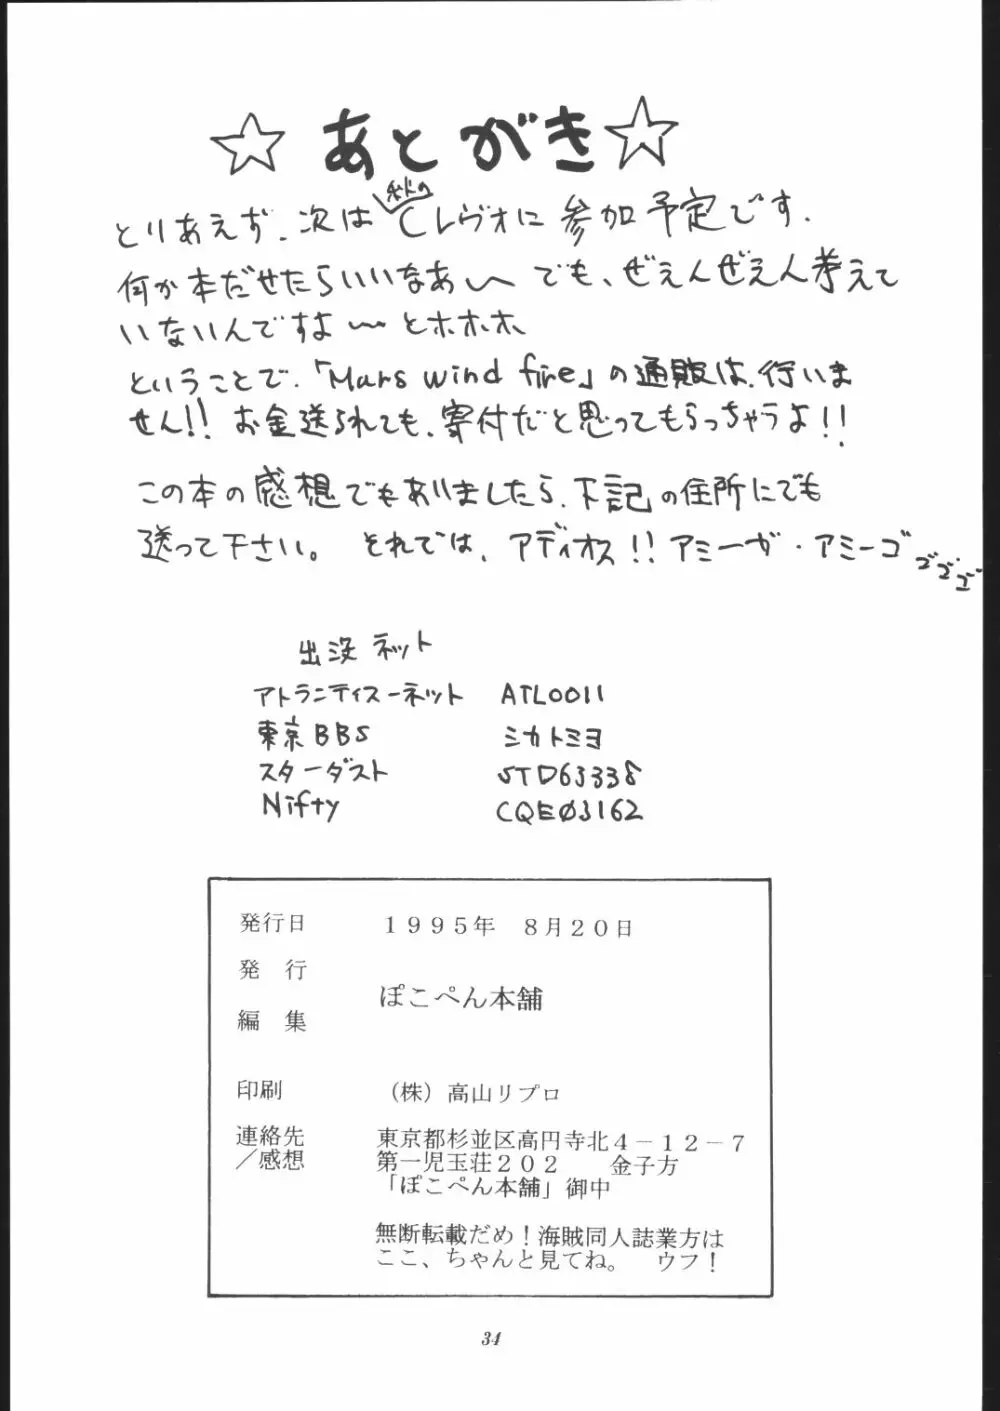 ☆ あとがき ☆
とりあえず、次は 秋の Cレヴォに 参加予定です.
何か本だせたらいいなあ〜 でも、ぜえんぜえん考えて
いないんですよ〜 とホホホ
ということで.「Mars wind fire」の通販は、行いま
せん!! お金送られても、寄付だと思ってもらっちゃうよ!!
この本の感想でもありましたら、下記の住所にでも
送って下さい。 それでは、アディオス!! アミーガ・アミーゴゴゴゴ
出没ネット
アトランティスーネット ATL0011
東京BBS シカトミヨ
スターダスト STD63338
Nifty CQE03162
発行日 1995年 8月20日
発 行
ぽこぺん本舗
編 集
印刷 (株)高山リプロ
連絡先 東京都杉並区高円寺北4-12-7
/感想 第一児玉荘202 金子方
「ぽこぺん本舗」御中
無断転載だめ!海賊同人誌業方は
ここ、ちゃんと見てね。 ウフ!
34